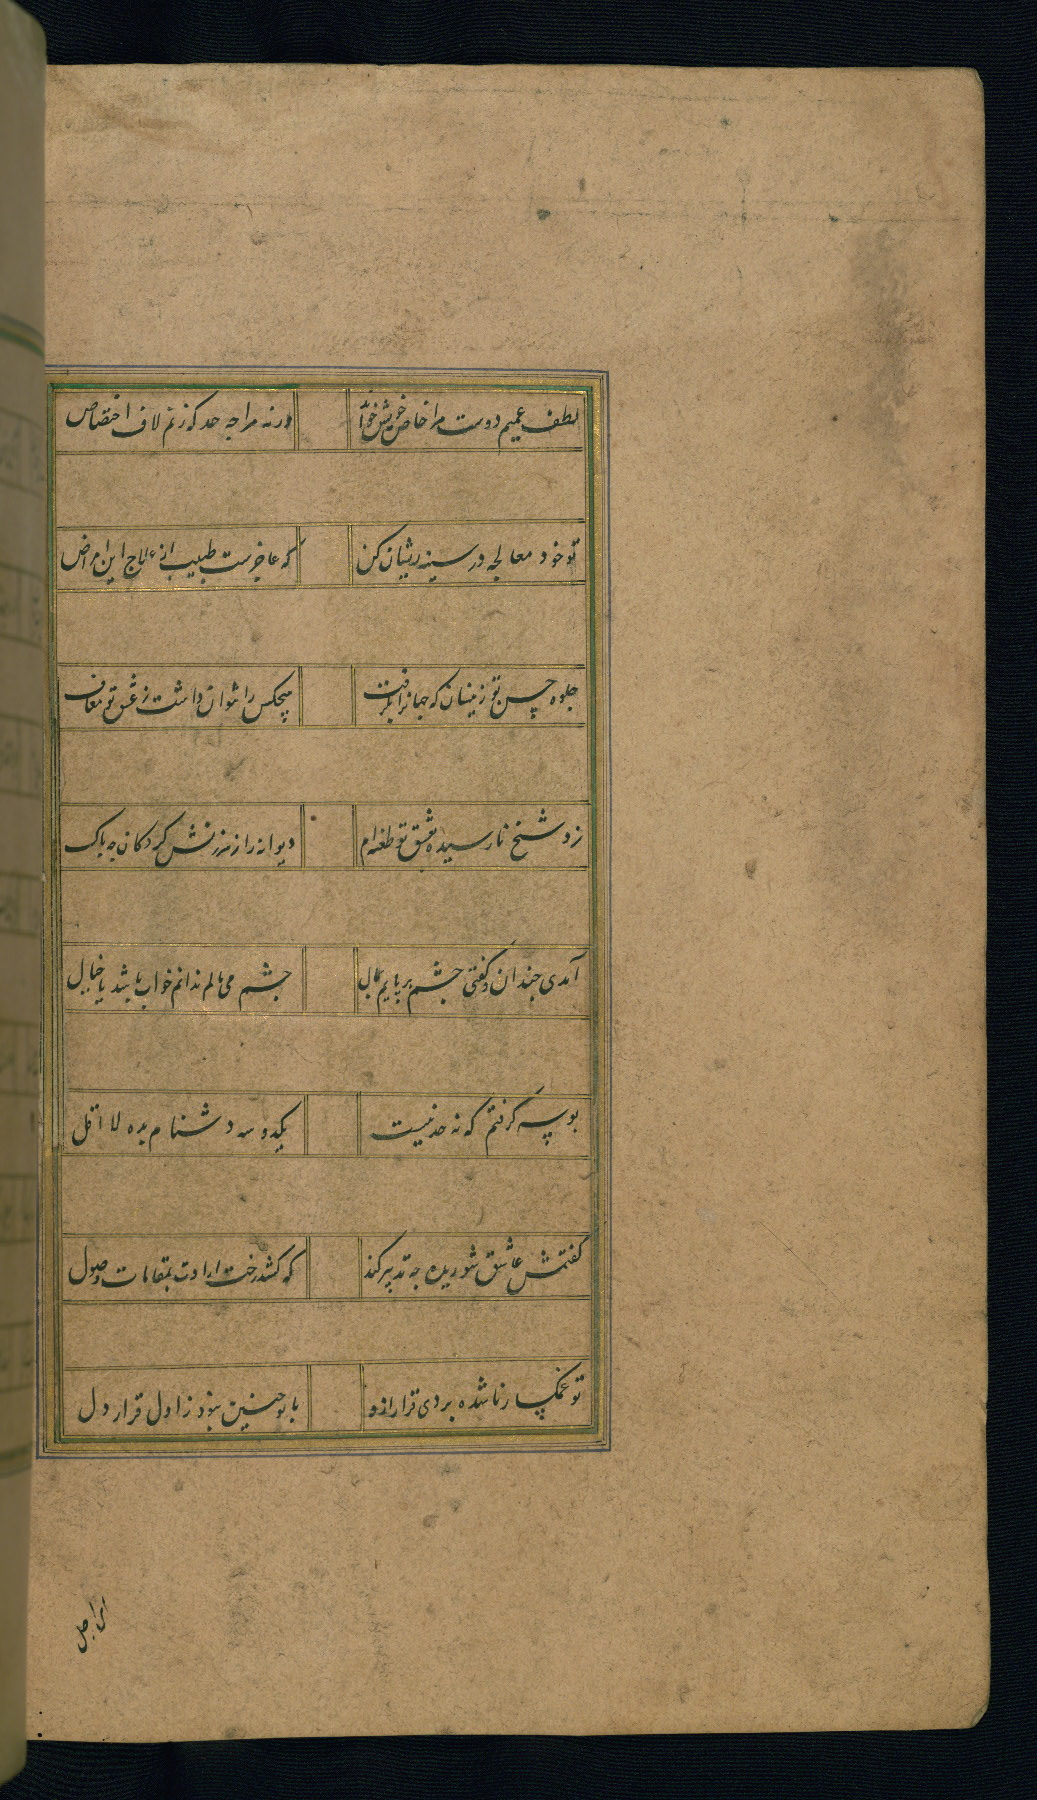 لطف عمیم دوست مرا خاص خویش خواند ورنه مرا چه حد که زنم لاف اختصاص
تو خود معالجه درد سینه ریشان کن که عاجزست طبیب از علاج این امراض
جلوه حسن تو زینسان که جهانرا بگرفت هیچکس را نتوان داشت ز عشق تو معاف
زد شیخ نارسیده بعشق تو طعنه‌ام دیوانه را ز سرزنش کودکان چه باک
آمدی خندان و گفتی چشم بر پایم بمال چشم می‌مالم ندانم خواب باشد یا خیال
بوسه گرفتم که نه حد نیست یکدو سه دشنام بده لا اقل
گفتمش عاشق شوریده چه تدبیر کند که کشد رخت ارادت بمقامات وصول
تو غمگسار ناشده بردی قرار ازو با تو چنین نبود ز اول قرار دل